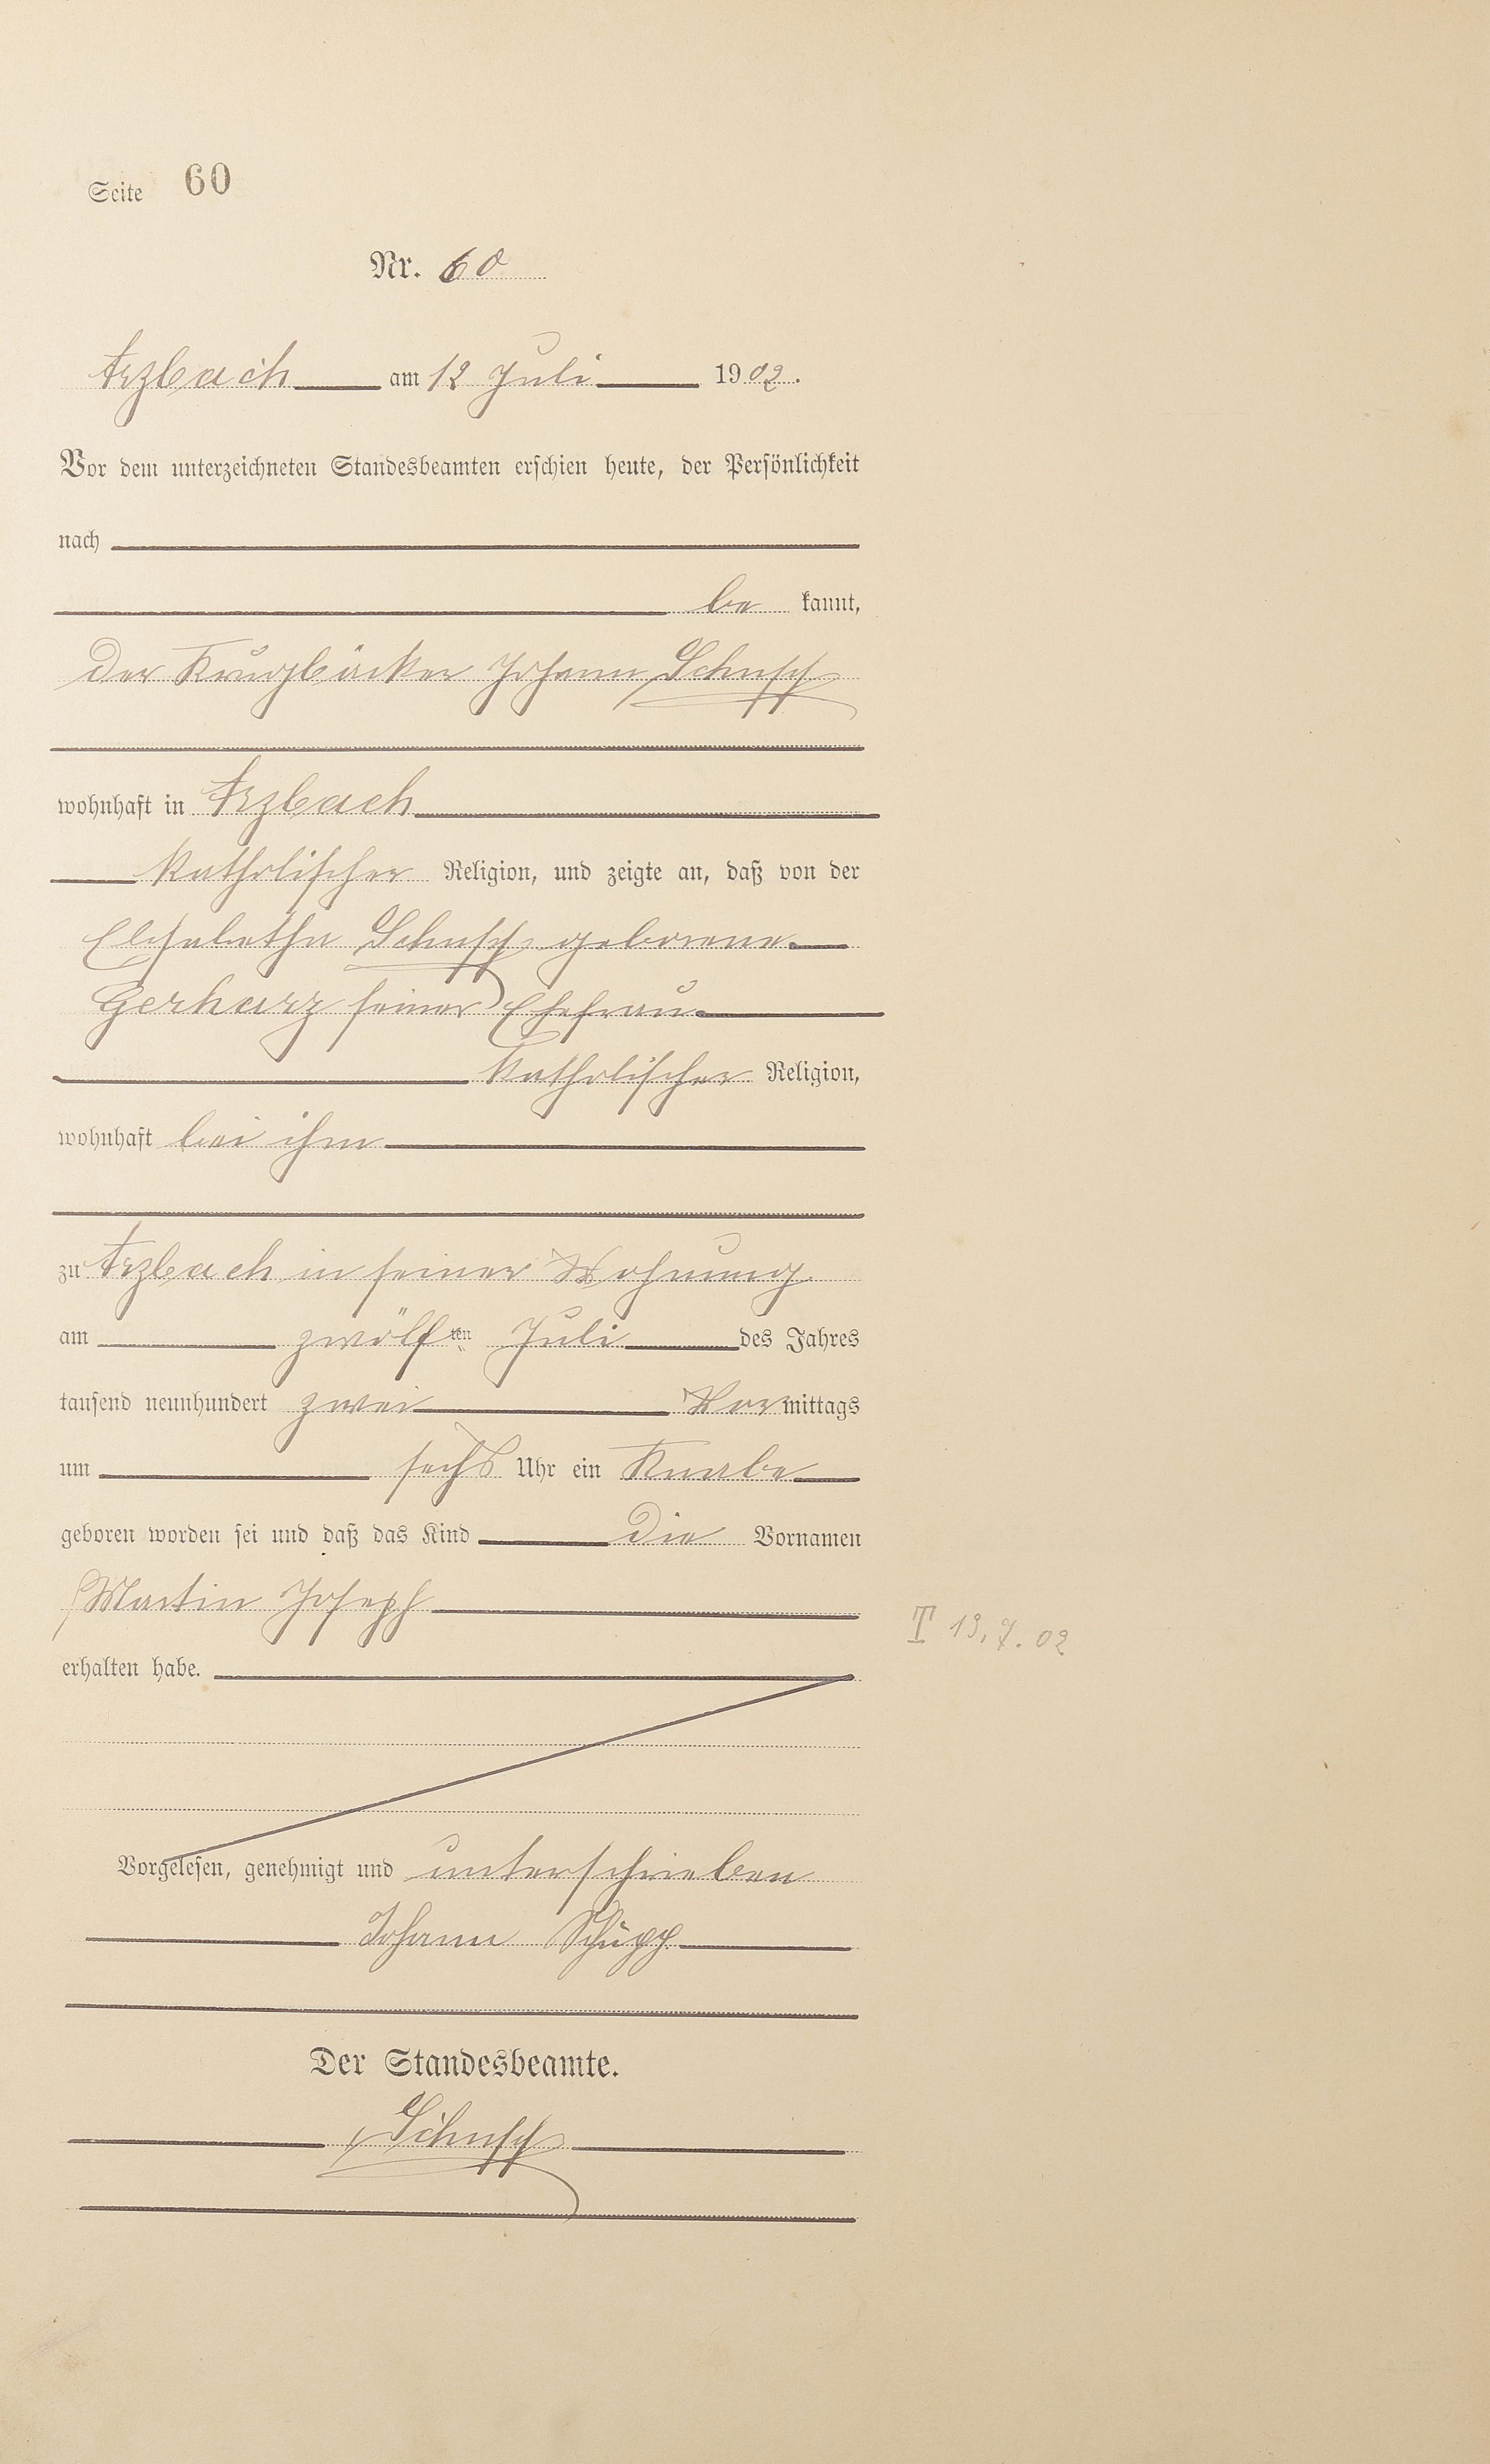 Seite 60
Nr. 60
Arzbach am 12 Juli 1902.
Vor dem unterzeichneten Standesbeamten erschien heute, der Persönlichkeit
nach
be kannt,
der Krugbäcker Johann Schupp
wohnhaft in Arzbach
katholischer Religion, und zeigte an, daß von der
Elisabetha Schupp geborene
Gerharz seiner Ehefrau
katholischer Religion,
wohnhaft bei ihm
zu Arzbach in seiner Wohnung
am zwölf ten Juli des Jahres
tausend neunhundert zwei Vormittags
um sechs Uhr ein Knabe
geboren worden sei und daß das Kind die Vornamen
Martin Joseph
T 13.7.02
erhalten habe.
Vorgelesen, genehmigt und unterschrieben
Johann Schupp
Der Standesbeamte.
Schupp